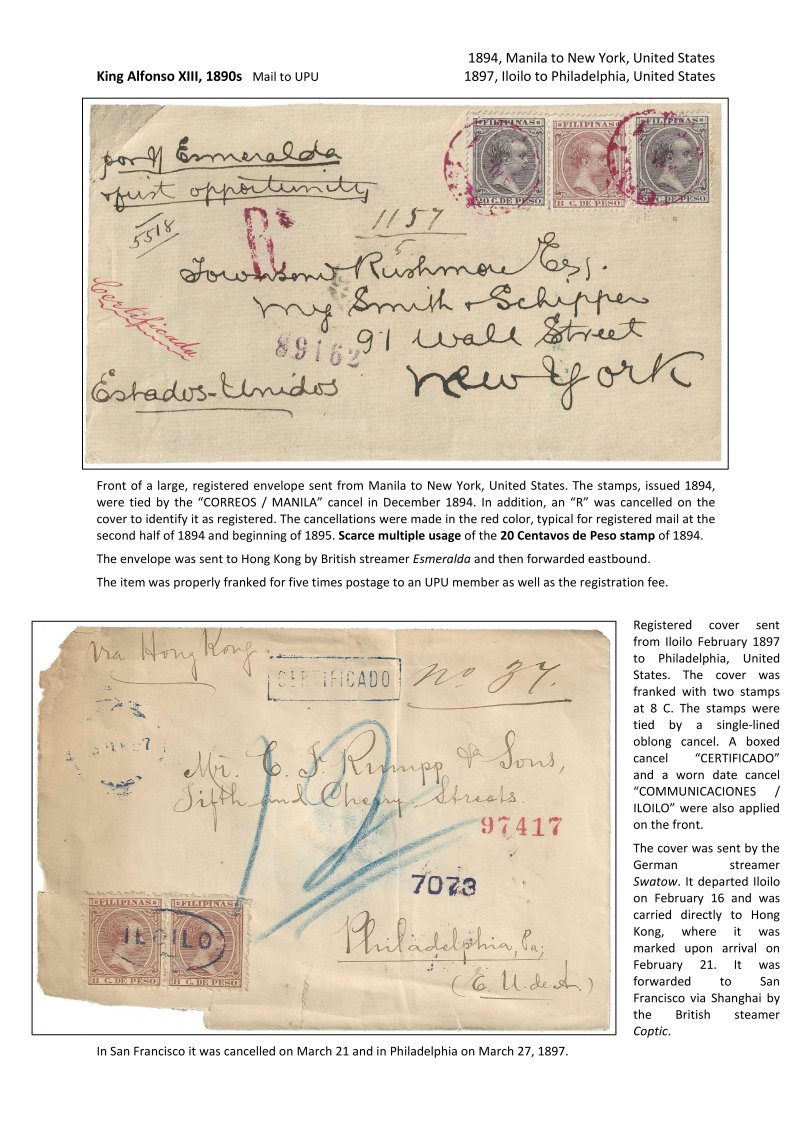 1894, Manila to New York, United States
King Alfonso XIII, 1890s Mail to UPU
1897, Iloilo to Philadelphia, United States
por Esmeralda
first opportunity
5518
R
1157
5
FILIPINAS
20 C. DE PESO
FILIPINAS
8 C. DE PESO
FILIPINAS
20 C. DE PESO
Townsend Rushmore Esq.
Smith & Schipper
91 Wall Street
New York
Certificada
89162
Estados-Unidos
Front of a large, registered envelope sent from Manila to New York, United States. The stamps, issued 1894,
were tied by the “CORREOS / MANILA” cancel in December 1894. In addition, an “R” was cancelled on the
cover to identify it as registered. The cancellations were made in the red color, typical for registered mail at the
second half of 1894 and beginning of 1895. Scarce multiple usage of the 20 Centavos de Peso stamp of 1894.
The envelope was sent to Hong Kong by British streamer Esmeralda and then forwarded eastbound.
The item was properly franked for five times postage to an UPU member as well as the registration fee.
via Hong Kong.
CERTIFICADO
no 37.
Mr. C. F. Rumpp & Sons,
Fifth and Cherry Streets.
97417
7073
FILIPINAS
8 C. DE PESO
FILIPINAS
8 C. DE PESO
ILOILO
Philadelphia, Pa;
(E. U. de A.)
Registered cover sent
from Iloilo February 1897
to Philadelphia, United
States. The cover was
franked with two stamps
at 8 C. The stamps were
tied by a single-lined
oblong cancel. A boxed
cancel “CERTIFICADO”
and a worn date cancel
“COMMUNICACIONES /
ILOILO” were also applied
on the front.
The cover was sent by the
German streamer
Swatow. It departed Iloilo
on February 16 and was
carried directly to Hong
Kong, where it was
marked upon arrival on
February 21. It was
forwarded to San
Francisco via Shanghai by
the British steamer
Coptic.
In San Francisco it was cancelled on March 21 and in Philadelphia on March 27, 1897.